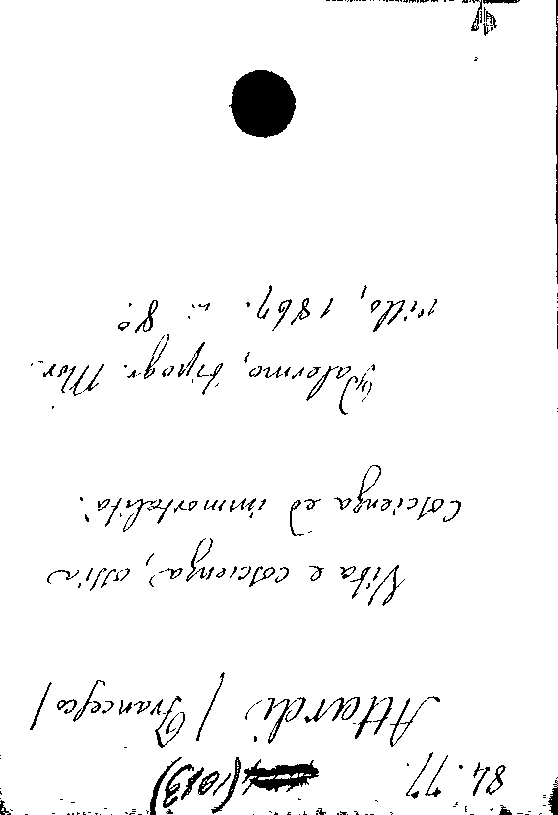 84.77. (1083)
Attardi (Francesco)
Vita e coscienza, ossia
Coscienza ed immortalità.
Palermo, tipogr. Mor-
villo, 1867. in 8°.